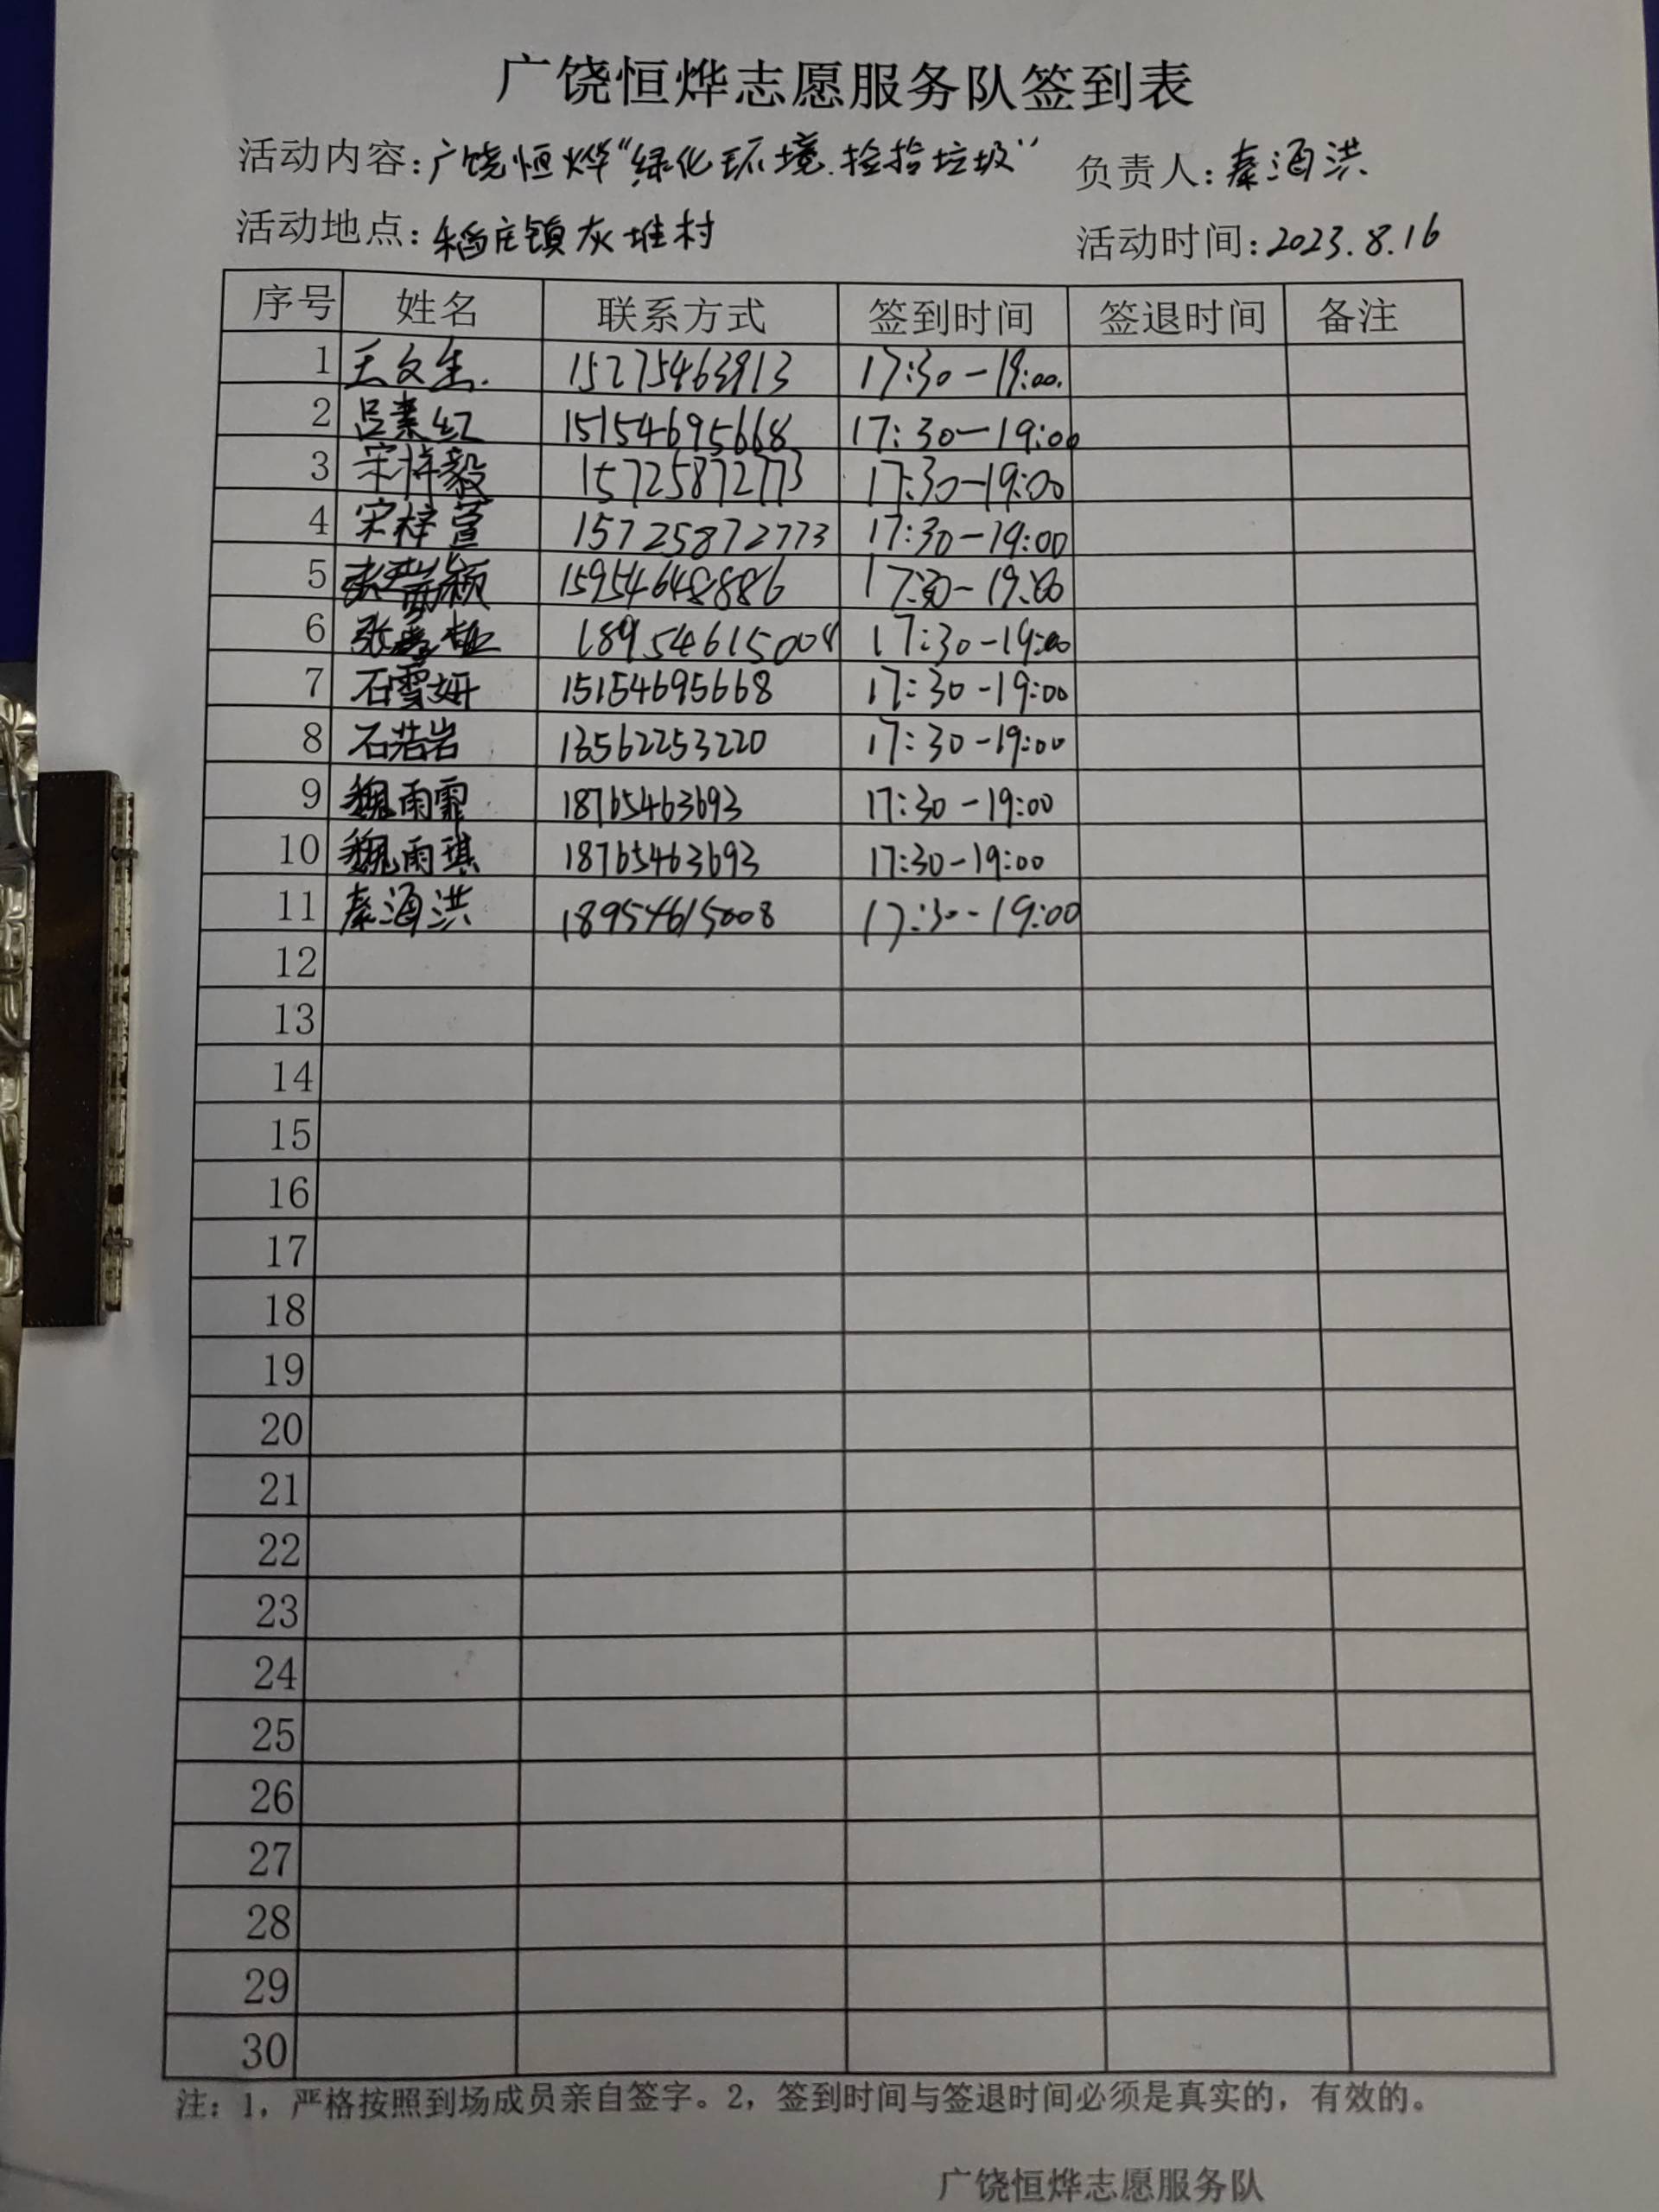 广饶恒烨志愿服务队签到表
活动内容:广饶恒烨“绿化环境.捡拾垃圾” 负责人:秦酒洪
活动地点:稻庄镇灰堆村 活动时间:2023.8.16
序号 姓名 联系方式 签到时间 签退时间 备注
1 王文生. 15275463913 17:30-19:00.
2 吕素红 15154695668 17:30-19:00
3 宋梓毅 15725872773 17:30-19:00
4 宋梓萱 15725872773 17:30-19:00
5 张 颖 15954648886 17:30-19:00
6 张 18954615008 17:30-19:00
7 石雪妍 15154695668 17:30-19:00
8 石若岩 13562253220 17:30-19:00
9 魏雨霏 18765463693 17:30-19:00
10 魏雨琪 18765463693 17:30-19:00
11 秦酒洪 18954615008 17:30-19:00
12
13
14
15
16
17
18
19
20
21
22
23
24
25
26
27
28
29
30
注:1,严格按照到场成员亲自签字。2,签到时间与签退时间必须是真实的,有效的。
广饶恒烨志愿服务队